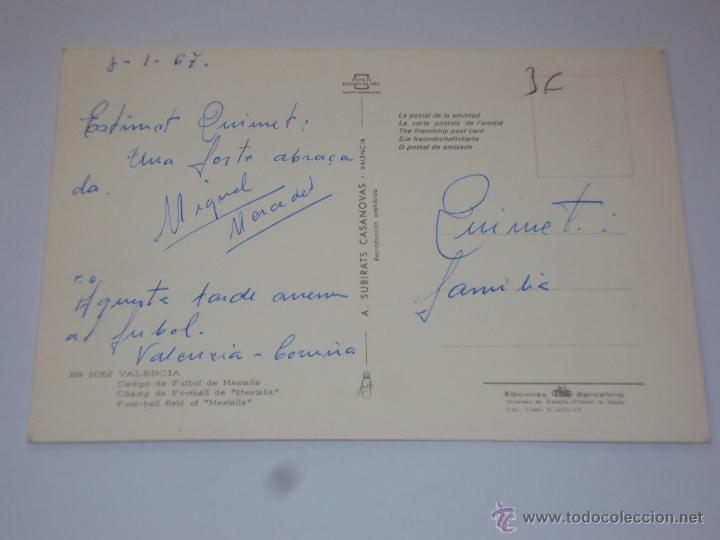 8-1-67.
Estimat Quimet:
Una forta abraça
da.
Miquel
Mercedes
Aquesta tarde anem
al futbol.
Valencia-Coruña
VALENCIA
Campo de Futbol de Mestalla
Champ de Football de "Mestalla"
Foot-ball field of "Mestalla"
A. SUBIRATS CASANOVAS - VALENCIA
Reproducción prohibida
3€
La postal de la amistad
La carte postale de l'amitié
The friendship post card
Die freundschaftskarte
O postal da amizade
Quimet:
familia
Ediciones Barcelona
© www.todocoleccion.net